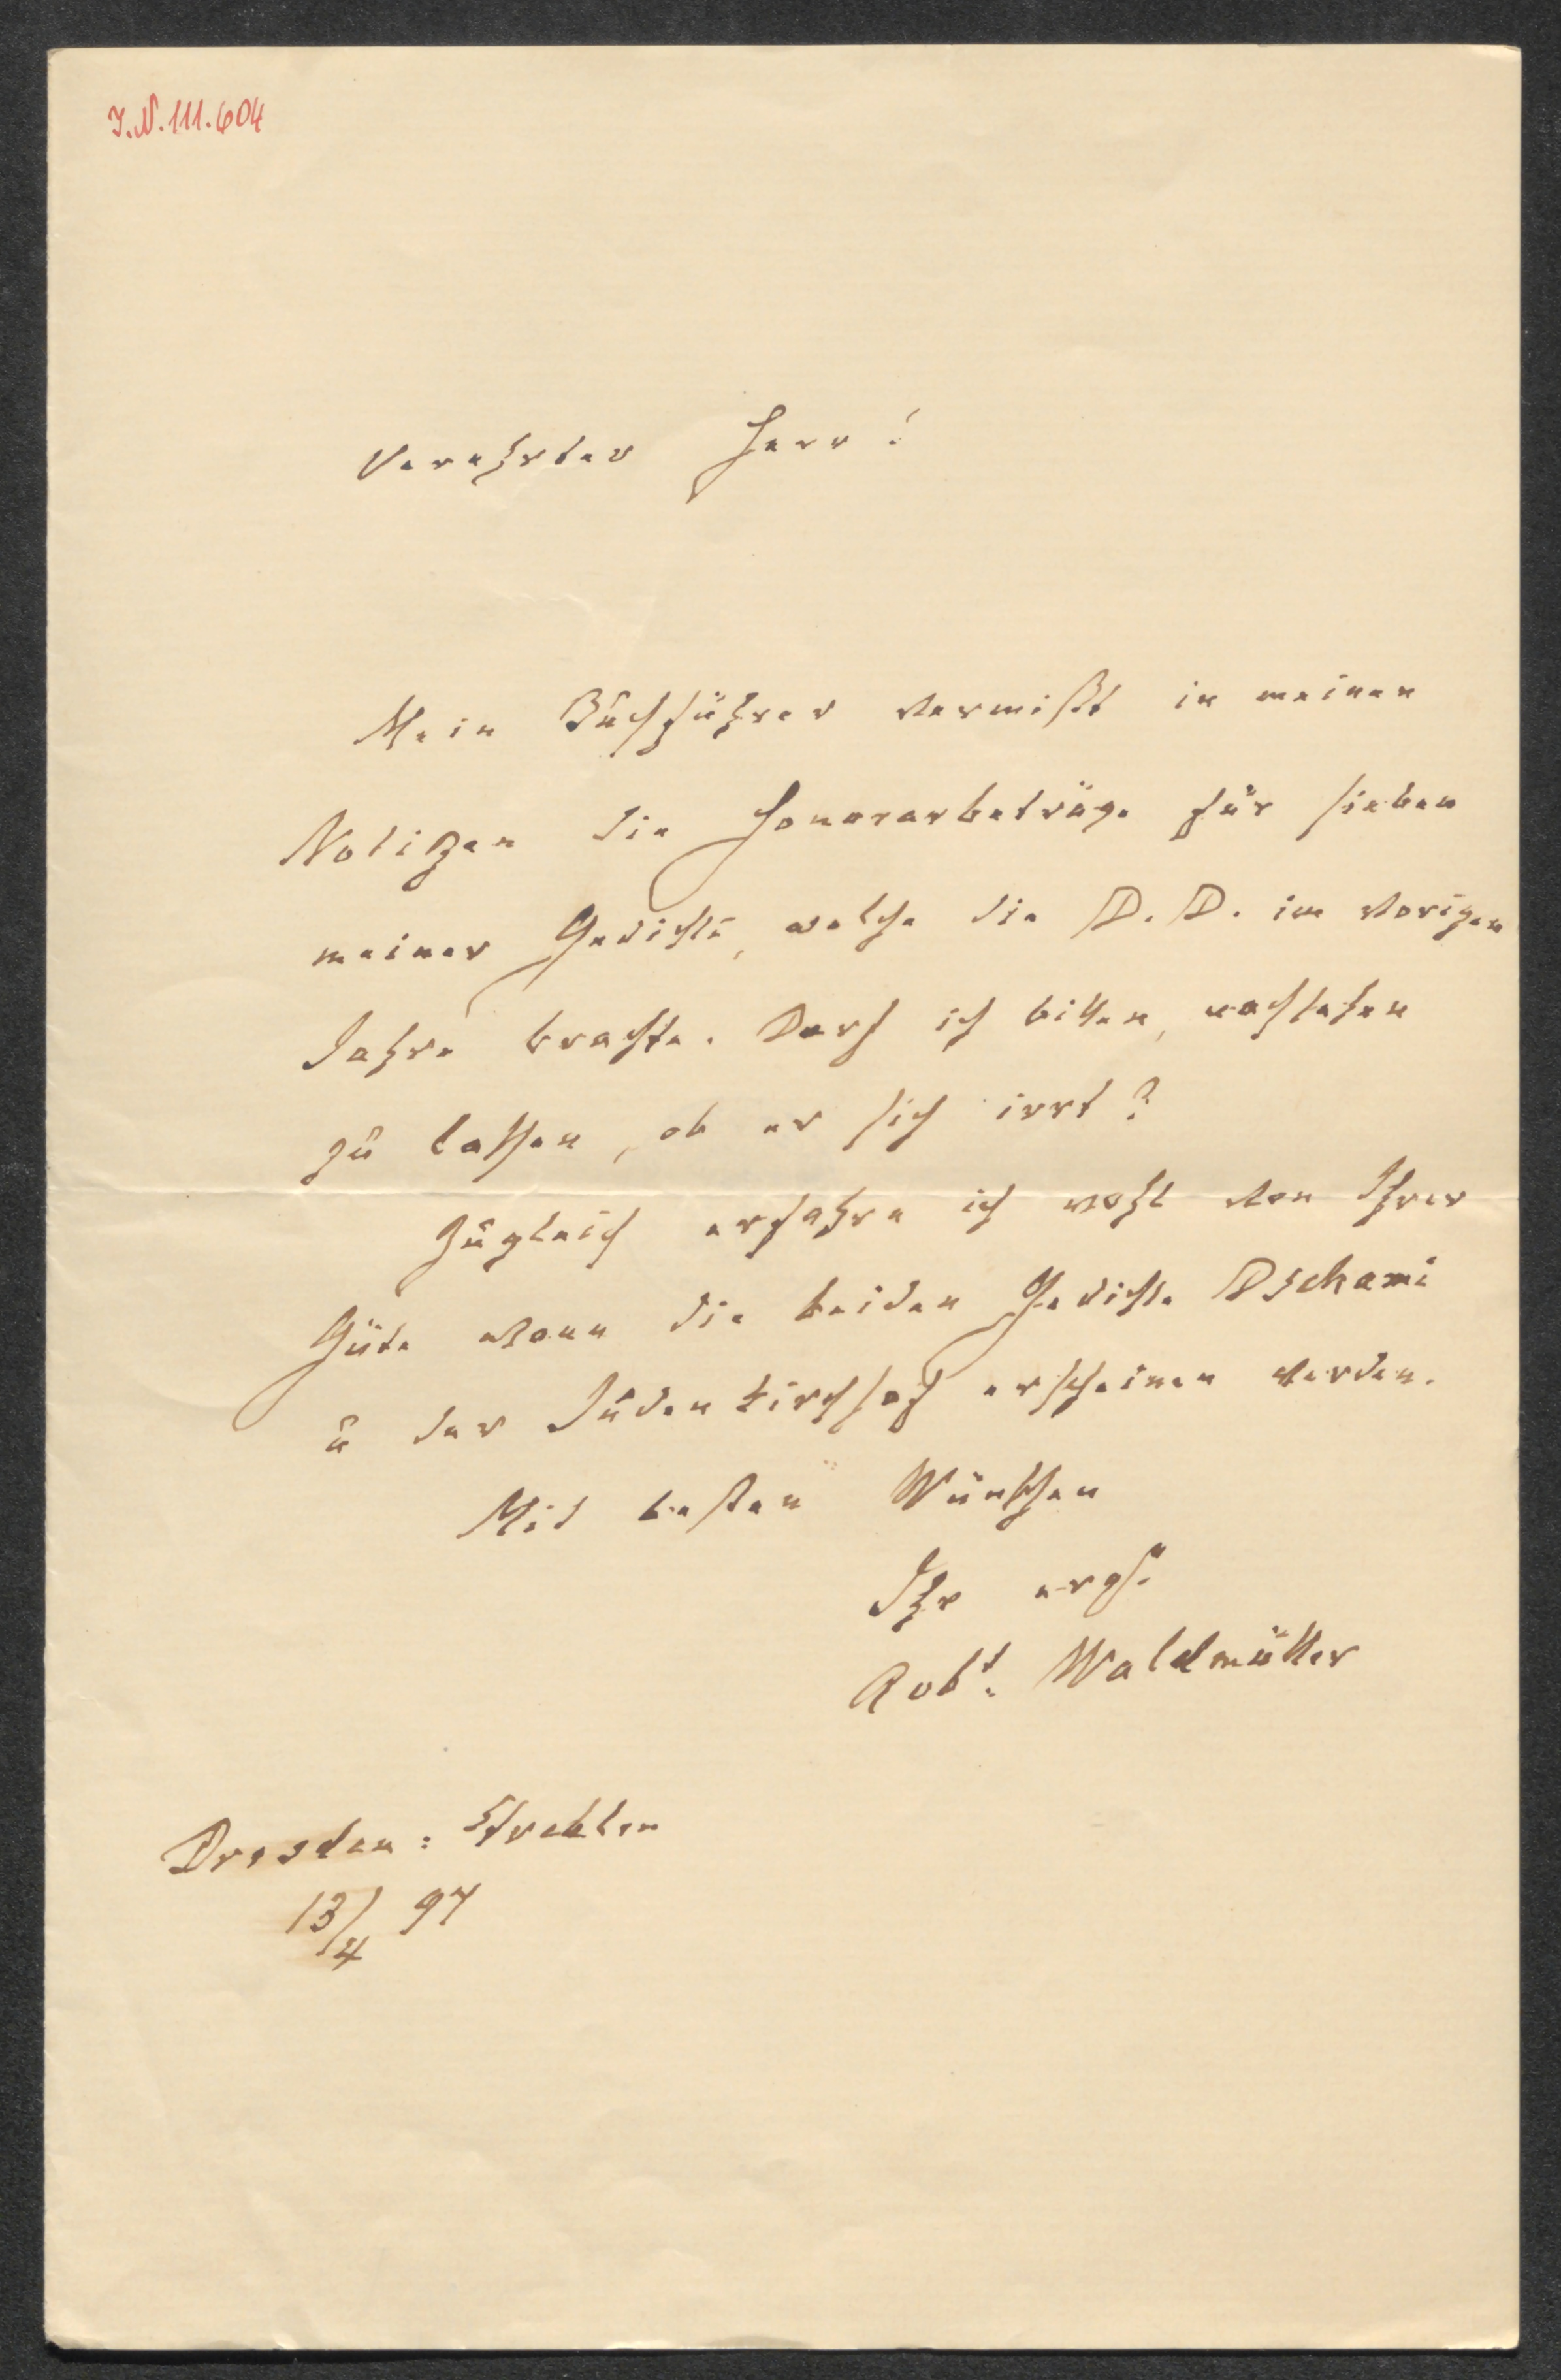 I.N. 111.604
Verehrter Herr!
Mein Buchführer vermißt in meinen
Notizen die Honorarbeträge für sieben
meiner Gedichte, welche die D. D. im vorigen
Jahre brachte. Darf ich bitten, nachsehen
zu lassen, ob er sich irrt?
Zugleich erfahre ich wohl von Ihrer
Güte wann die beiden Gedichte Dschami
u der Judenkirchhof erscheinen werden.
Mit besten Wünschen
Ihr ergb.
Robt. Waldmüller
Dresden: Strehlen
13/4 97